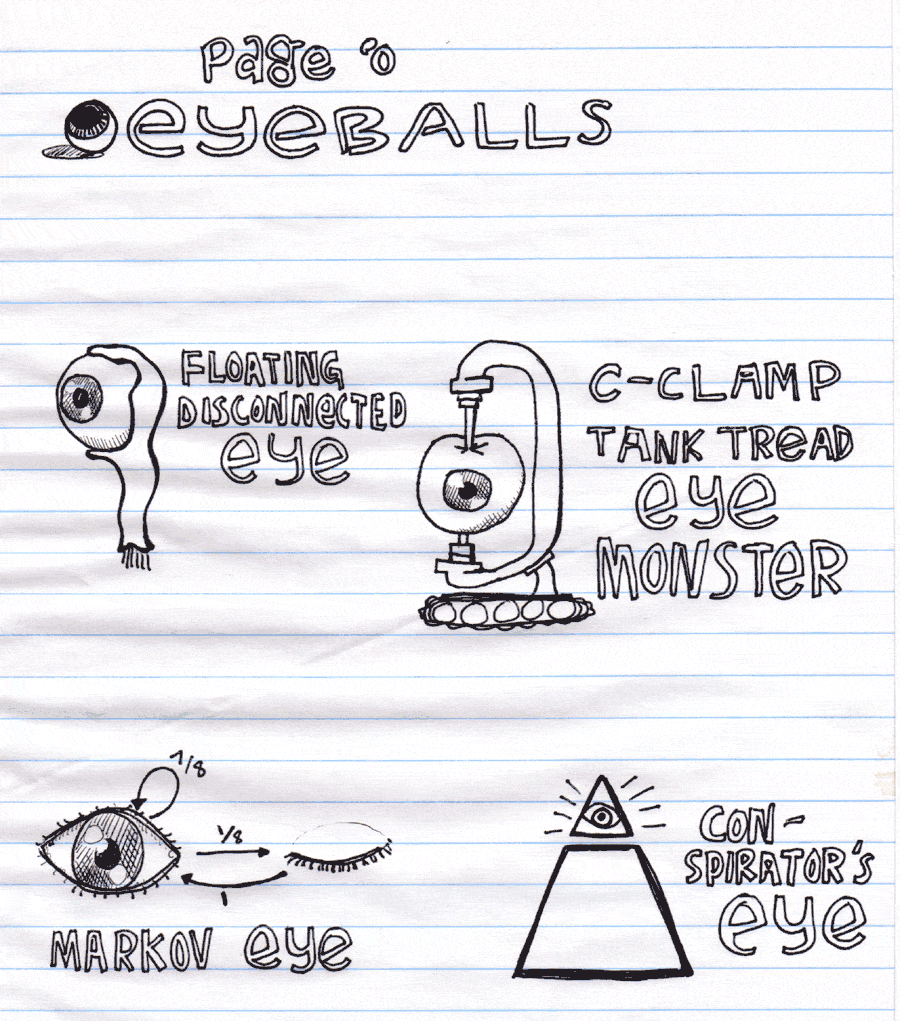 Page 'o
eyeBALLS
FLOATING
DISCONNeCTED
eye
C-CLAMP
TANK TReAD
eye
MONSTeR
7/8
1/8
1
MARKOV eye
CON-
SPIRATOR'S
eye